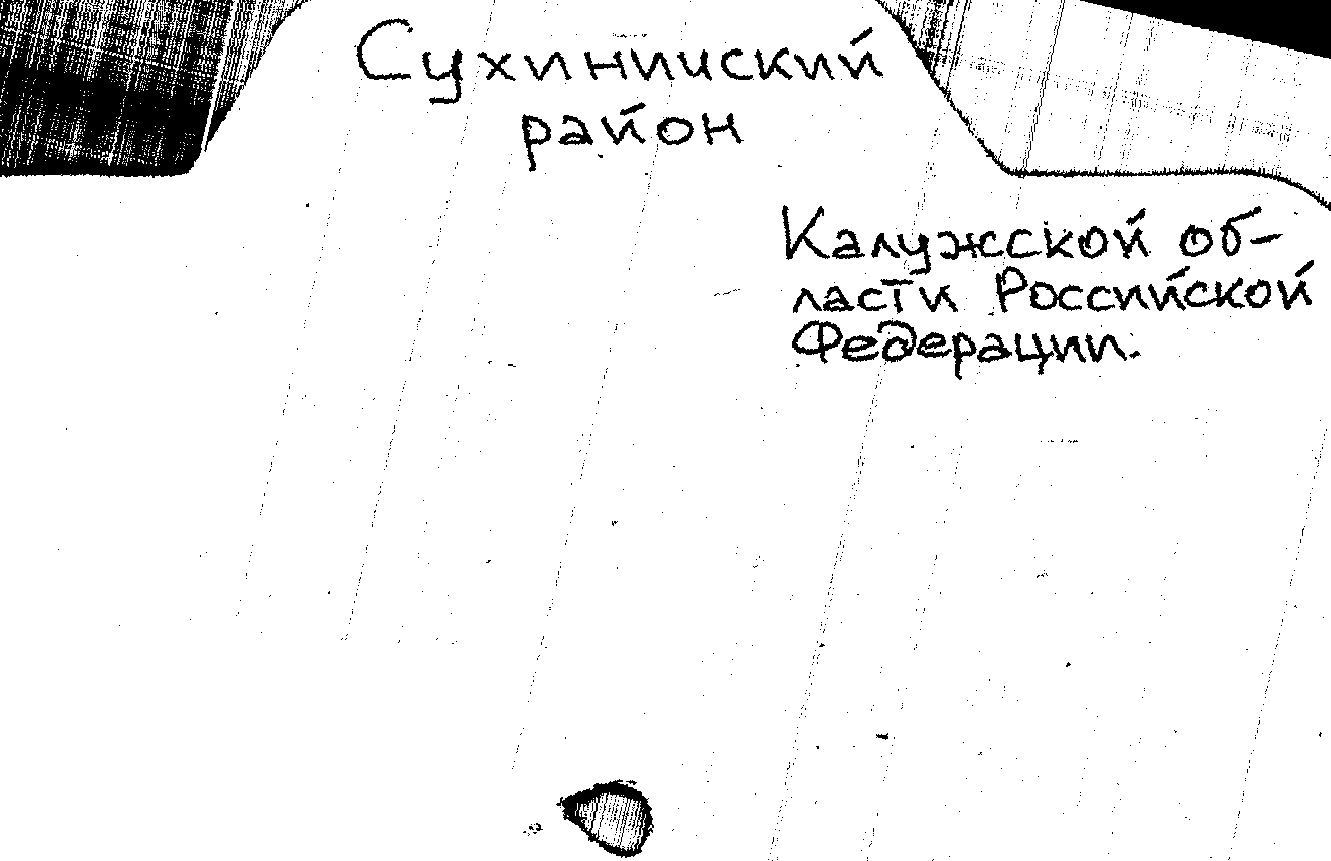 Сухиничский
район
Калужской об-
ласти Российской
Федерации.